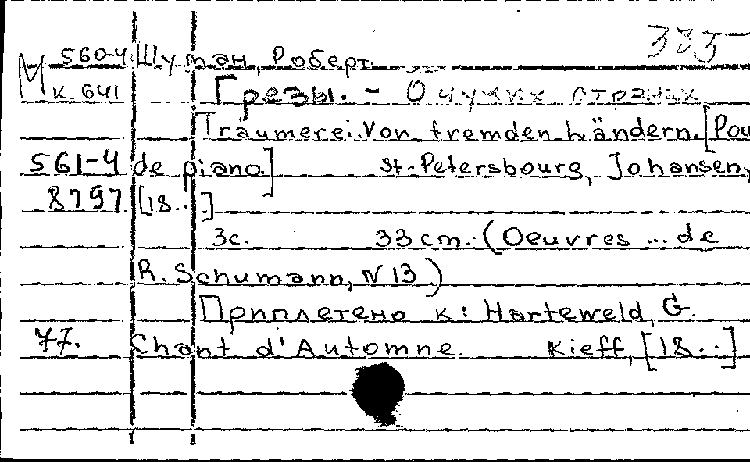 335
560-4 Шуман, Роберт.
М к. 641 Грезы. - О чужих странах
Träumerei. Von fremden Ländern. [Pou
561-4 de piano.] St.-Petersbourg, Johansen,
8797 [18..]
3с. 33 cm. (Oeuvres ... de
R. Schumann, N 13)
Приплетено к: Harteweld, G.
77. Chant d'Automne. Kieff, [18..]